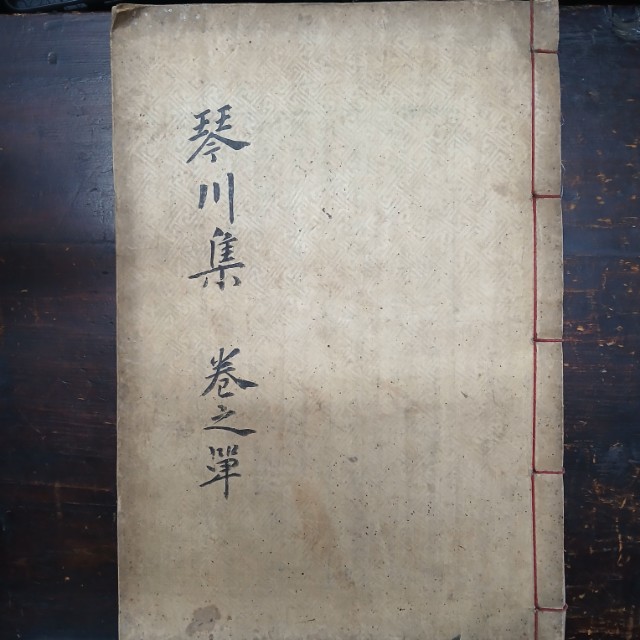 琴川集 卷之單